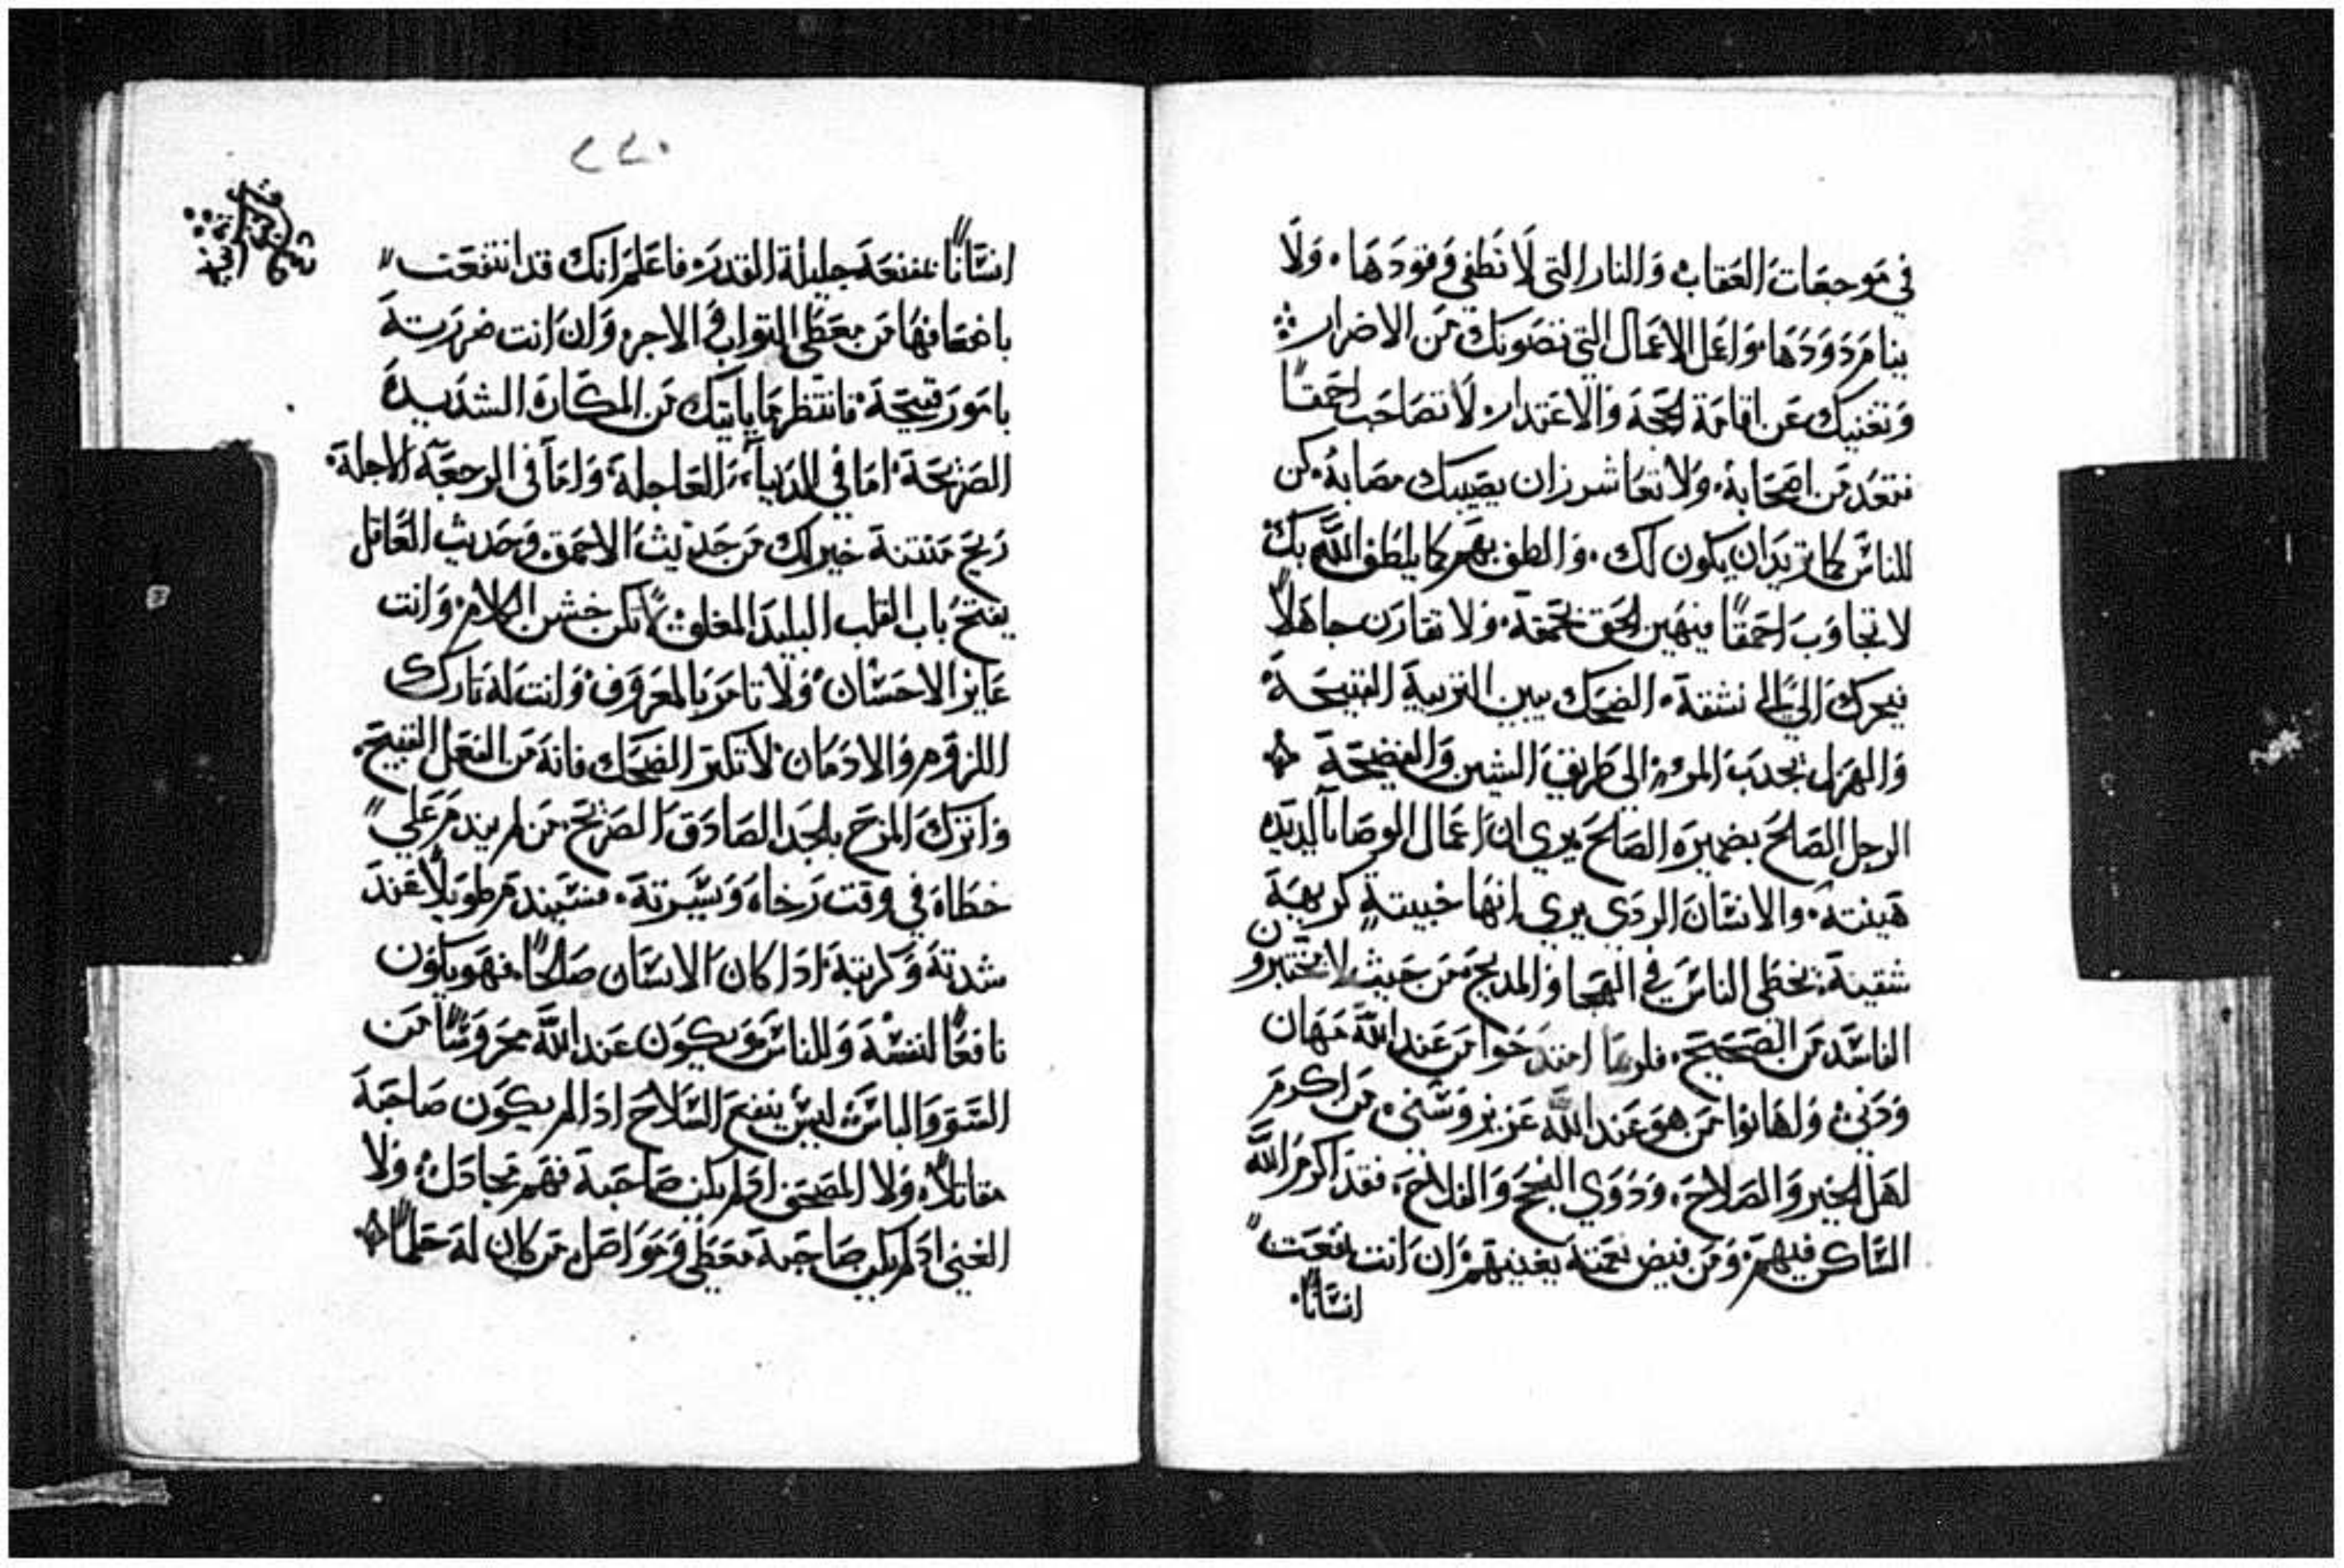 في موجعات العقاب والنار التي لا تطفي وقودها. ولا
ينام دودها واعمل الاعمال التي تصونك من الاضرار
وتغنيك عن اقامة الحجة والاعتدار لا تصاحب احمقًا
فتعد من اصحابة. ولا تعاشر زان يصيبك مصابة. كن
للناس كما تريد ان يكون لك. والطف بهم كما يلطف الله بك
لا تجاوب احمقًا فيهين الحق بحمقة. ولا تقارن جاهلاً
فيجرك الي نشقة. الضحك يبين التربية القبيحة.
والهزل يجدب المرء الي طريق الشين والفضيحة
الرجل الصالح بضميره الصالح يري ان اعمال الوصايا لديدة
هينة. والانسان الردي يري انها خبيتة كريهة
شقينة. يخطي الناس في الهجا والمديح من حيث لا يختبرون
الفاسد من الصحيح. امتدحوا من عند الله مهان
ودني. ولهانوا من هو عند الله عزيز وسني. من اكرم
لهل الخير والصلاح. ودوي النجح والفلاح. فقد اكرم الله
الساكن فيهم. ومن فيض نعمتة يغنيهم. ان انت نفعت
انسانًا.
٢٢٠
انسانًا بمنفعة جليلة القدر. فاعلم انك قد انتفعت
باضعافها من معطي التواب والاجر. وان انت ضررتة
بامور قبيحة. فانتظر ما ياتيك من المكاره الشديدة
الصريحة. اما في الدنيا العاجلة. واما في الرجعة الاجلة.
ريح منتنة خير لك من حديث الاحمق. وحديث العاقل
يفتح باب القلب البليد المغلق. لا تكن خشن الكلام. وانت
عايز الاحسان. ولا تامر بالمعروف وانت له تارك
اللزوم والادمان. لا تكتر الضحك فانه من الفعل القبيح.
واترك المزح بالجد الصادق الصريح. من لم يندم علي
خطاه في وقت رخاه ومسرتة. فسيندم طويلاً عند
شدتة وكربتة. ادا كان الانسان صالحًا. فهو يكون
نافعًا لنفسة وللناس. ويكون عند الله محروسًا من
السو والباس. ليس ينفع السلاح ادا لم يكون صاحبة
مقاتلاً. ولا المصحف اد لم يكن صاحبة فهم مجادل. ولا
الغني اد لم يكن صاحبة معطي ومواصل من كان له حلمًا